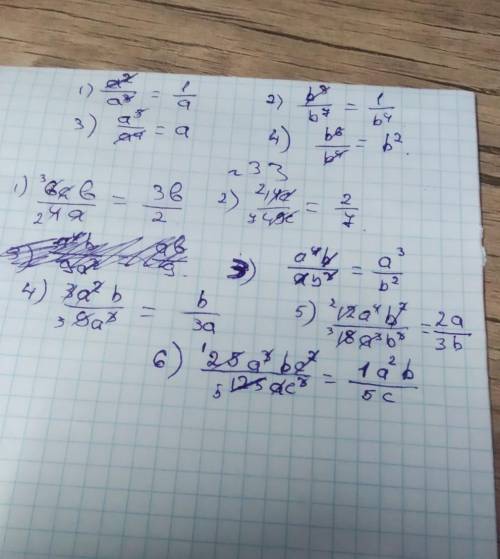 1) a²/a³ = 1/a
2) b³/b⁷ = 1/b⁴
3) a⁵/a⁴ = a
4) b⁶/b⁴ = b².
~33
1) ³6ab/₂4a = 3b/2
2) ²14x/₇49x = 2/7.
3) a⁴b/ab³ = a³/b²
4) 3a²b/₃9a³ = b/3a
5) ²12a⁴b²/³18a³b³ = 2a/3b
6) ¹25a³bc²/₅125ac³ = 1a²b/5c